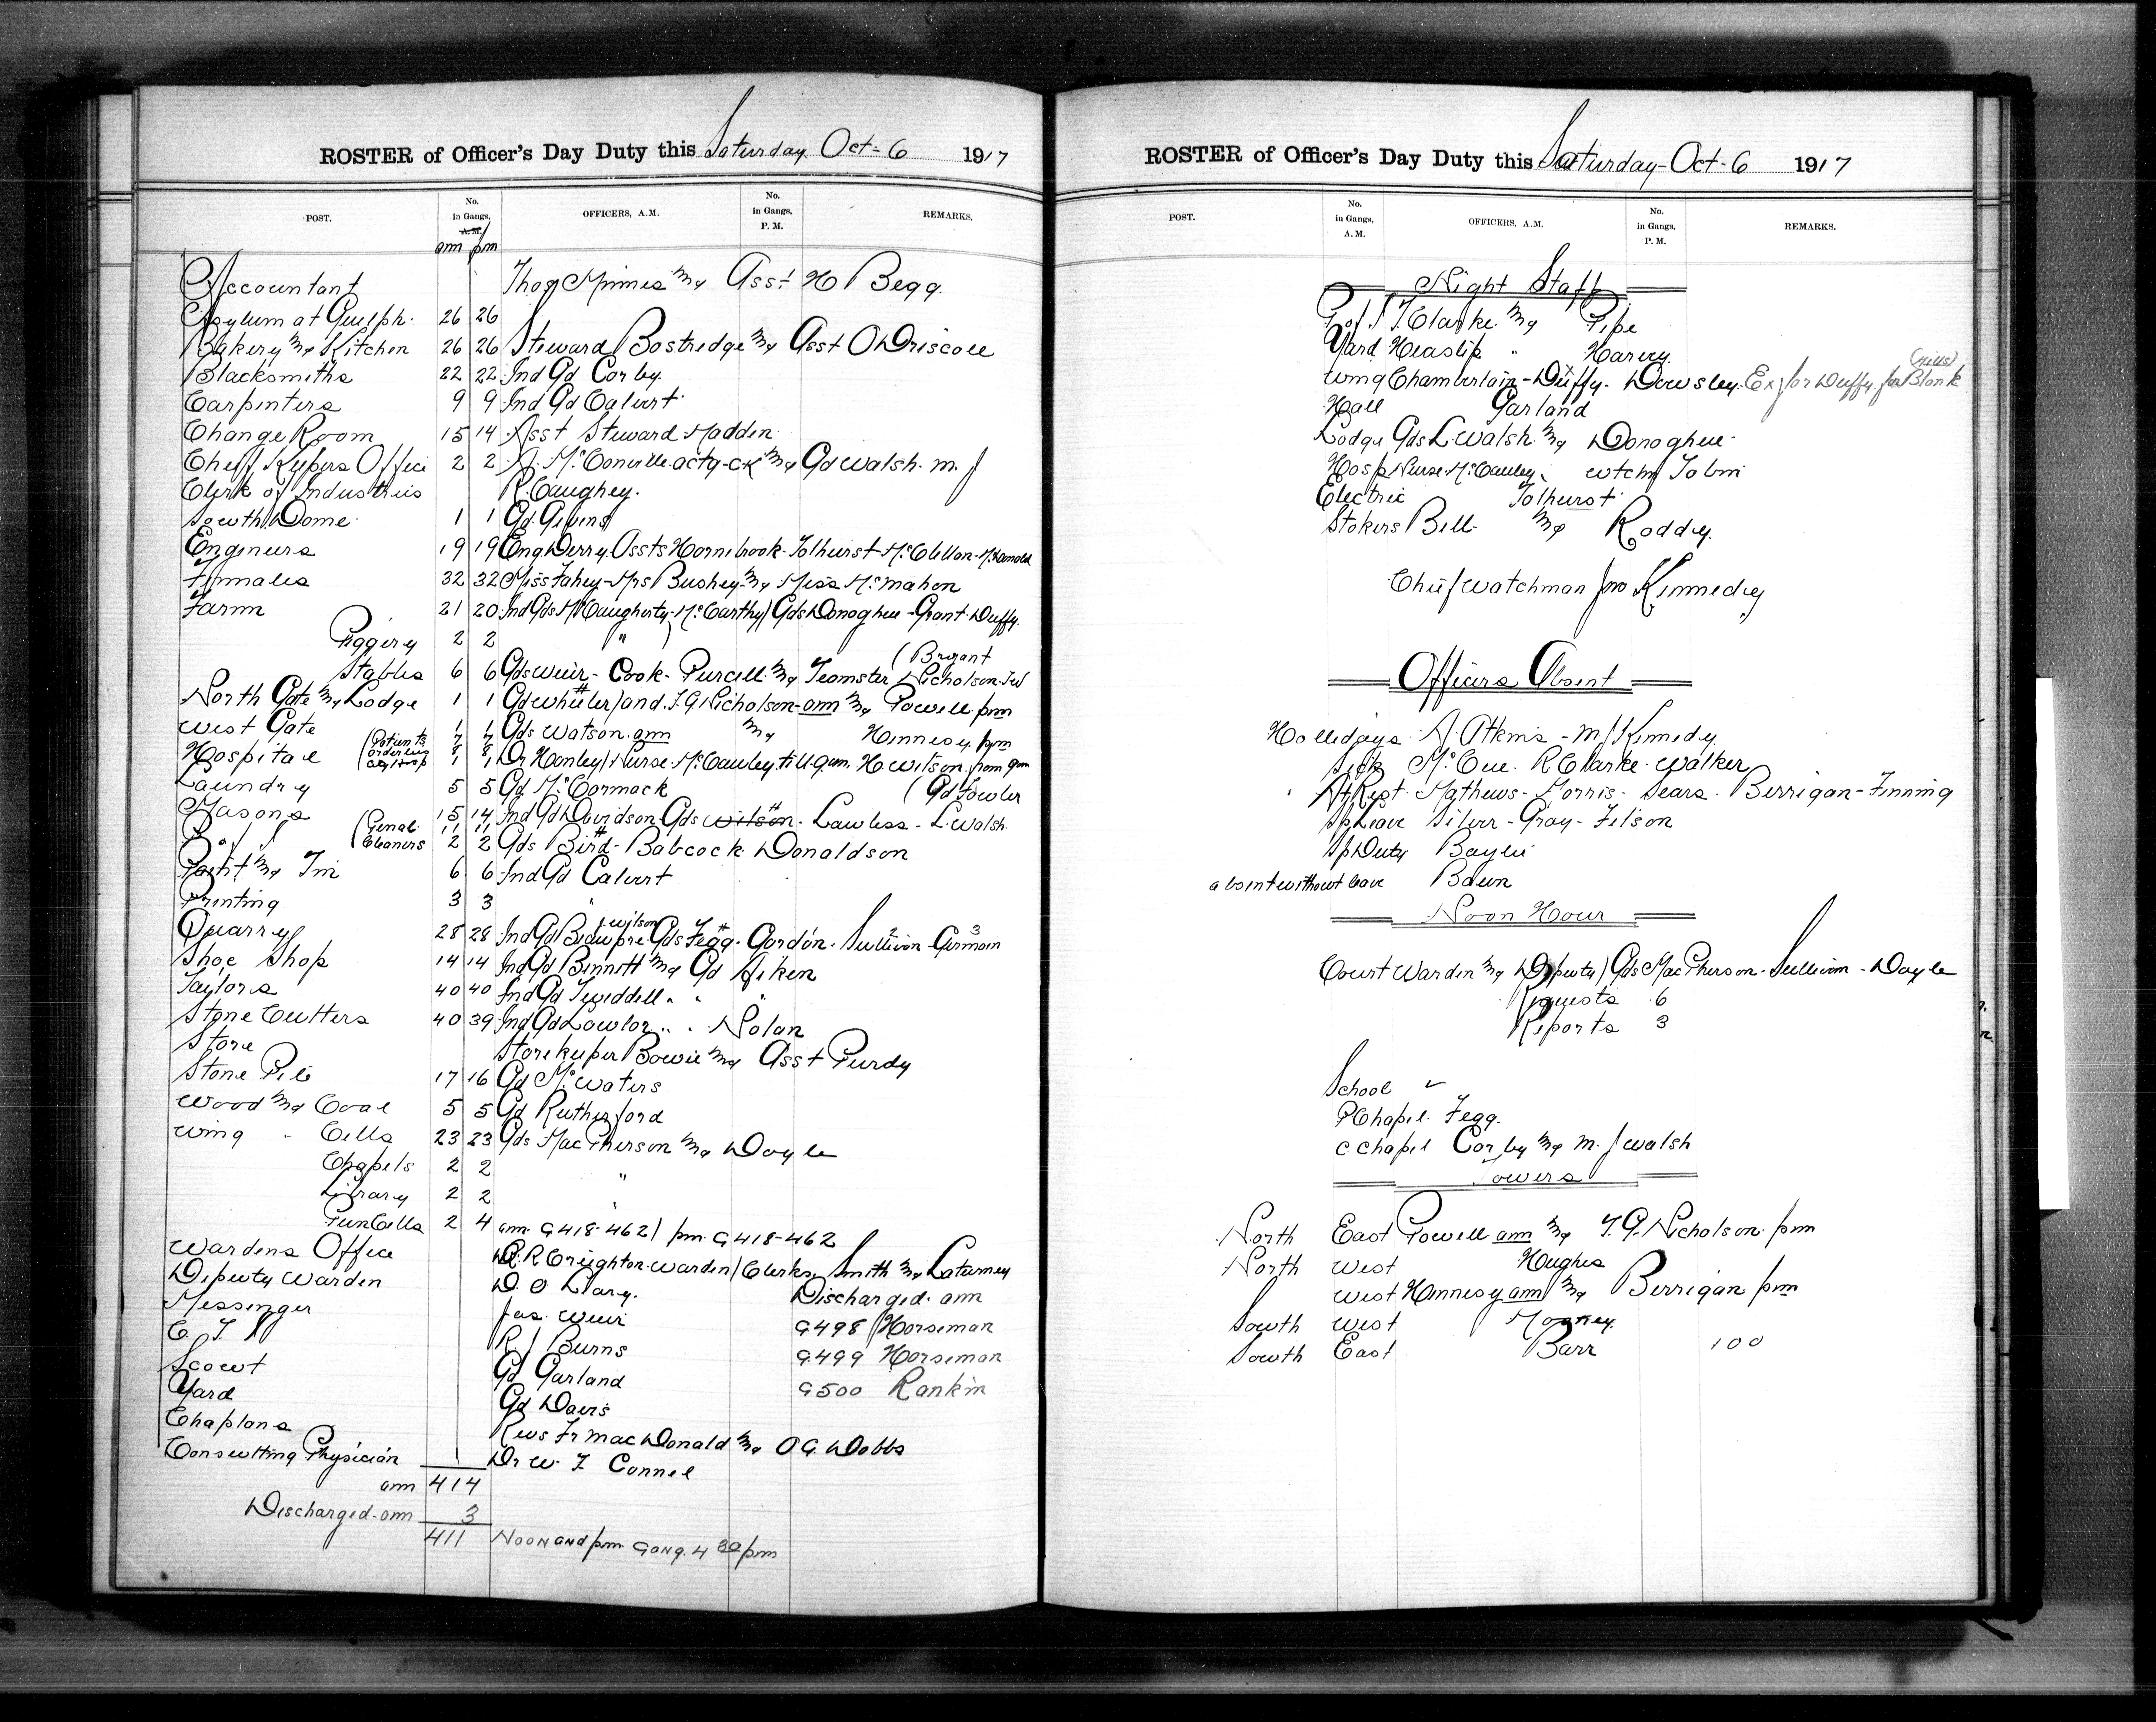 ROSTER of Officer's Day Duty this Saturday Oct-6 1917
POST.
No. in Gangs, A.M.
OFFICERS, A.M.
No. in Gangs, P.M.
REMARKS.
am pm
Accountant Asst H Begg.
Asylum at Guelph. 26 26
Bakery & Kitchen 26 26 Steward Bostridge & Asst O Driscoll
Blacksmiths 22 22 Ind Gd Corby.
Carpenters 9 9 Ind Gd Calvert
Change Room 15 14 Asst Steward Madden
Chief Keepers Office 2 2 A. McConville. actg-CK & Gd Walsh. M. J
Clerk of Industries R. Caughey.
South Dome 1 1 Gd. Givens
Engineers 19 19 Eng Derry. Assts Hornibrook- Tolhurst- McClellan- McDonald
Females 32 32 Miss Fahey- Mrs Bushey & Miss McMahon
Farm 21 20 Ind Gds McCaugherty- McCarthy/ Gds Donoghue- Grant- Duffy.
Piggery 2 2 "
(Bryant
Stables 6 6 Gds Weir- Cook- Purcell. & Teamster Nicholson.
North Gate & Lodge 1 1 Gd Wheeler/ and. T. G. Nicholson- am & Powell. pm
West Gate 1 1 Gds Watson. am & Hennesy. pm
Hospital (Patients 7 7
orderlies 8 8 Dr Hanley/ Nurse. McCauley. till 9 am. H Wilson. from 9 am
1 1
Laundry 5 5 Gd McCormack (Gd Fowler
Masons 15 14 Ind Gd Davidson- Gds Wilson- Lawless- L. Walsh.
(Genal 11 11
Cleaners 2 2 Gds Bird- Babcock Donaldson
Paint & Tin 6 6 Ind Gd Calvert
Printing 3 3 "
Wilson
Quarry 28 28 Ind Gd Beaupre. Gds Fegg- Gordon- Sullivan- Germain 3
Shoe Shop 14 14 Ind Gd Bennett & Gd Aiken
Taylors 40 40 Ind Gd Tweddell " " "
Stone Cutters 40 39 Ind Gd Lawlor " " Nolan
Store Storekeeper Bowie & Asst Purdy
Stone Pile 17 16 Gd McWaters
Wood & Coal 5 5 Gd Rutherford
Wing " Cells 23 23 Gds MacPherson & Doyle
Chapels 2 2 "
Library 2 2 "
Pun Cells 2 4 am. G418-462/ pm. G418-462
Wardens Office R. R Creighton- Warden/ Clerks. Smith & Laturney
Deputy Warden D. O Leary. Discharged. am
Messenger Jas. Weir G498 Horseman
R J Burns G499 Horseman
Scout Gd Garland G500 Rankin
Yard Gd Davis
Chaplans Revs Fr MacDonald & O G. Dobbs
Consulting Physician Dr W. T Connel
am 414
Discharged- am 3
411 Noon and pm. Gang. 4 30 pm
ROSTER of Officer's Day Duty this Saturday- Oct-6 1917
POST.
No. in Gangs, A.M.
OFFICERS, A.M.
No. in Gangs, P.M.
REMARKS.
Night Staff
P of J T. Clarke. & Pipe
Yard Heaslip " Harvey.
Wing Chamberlain- Duffy- Dowsley. Ex for Duffy. for Blank
Hall Garland
Lodge Gds L. Walsh. & Donoghue
Hosp Nurse. McCauley. Tobin
Electric Tolhurst
Stokers Bell & Roddy.
Chief Watchman Jno Kennedy
Officers Absent
Hollidays A. Atkins- M J Kennedy.
Sick McCue. R Clarke. Walker
At Rest. Mathews- Morris- Sears. Berrigan- Finning
Sp Leave Silver- Gray- Filson
Sp Duty Baylie
absent without leave
Noon Hour
Court Warden & Deputy/ Gds MacPherson- Sullivan- Doyle
Requests 6
Reports 3
School
P Chapel. Fegg.
C Chapel Corby & M. J Walsh
Towers
North East Powell am & T. G. Nicholson pm
North West Hughes
West Hennesy am & Berrigan pm
South West Mooney.
South East Barr 100